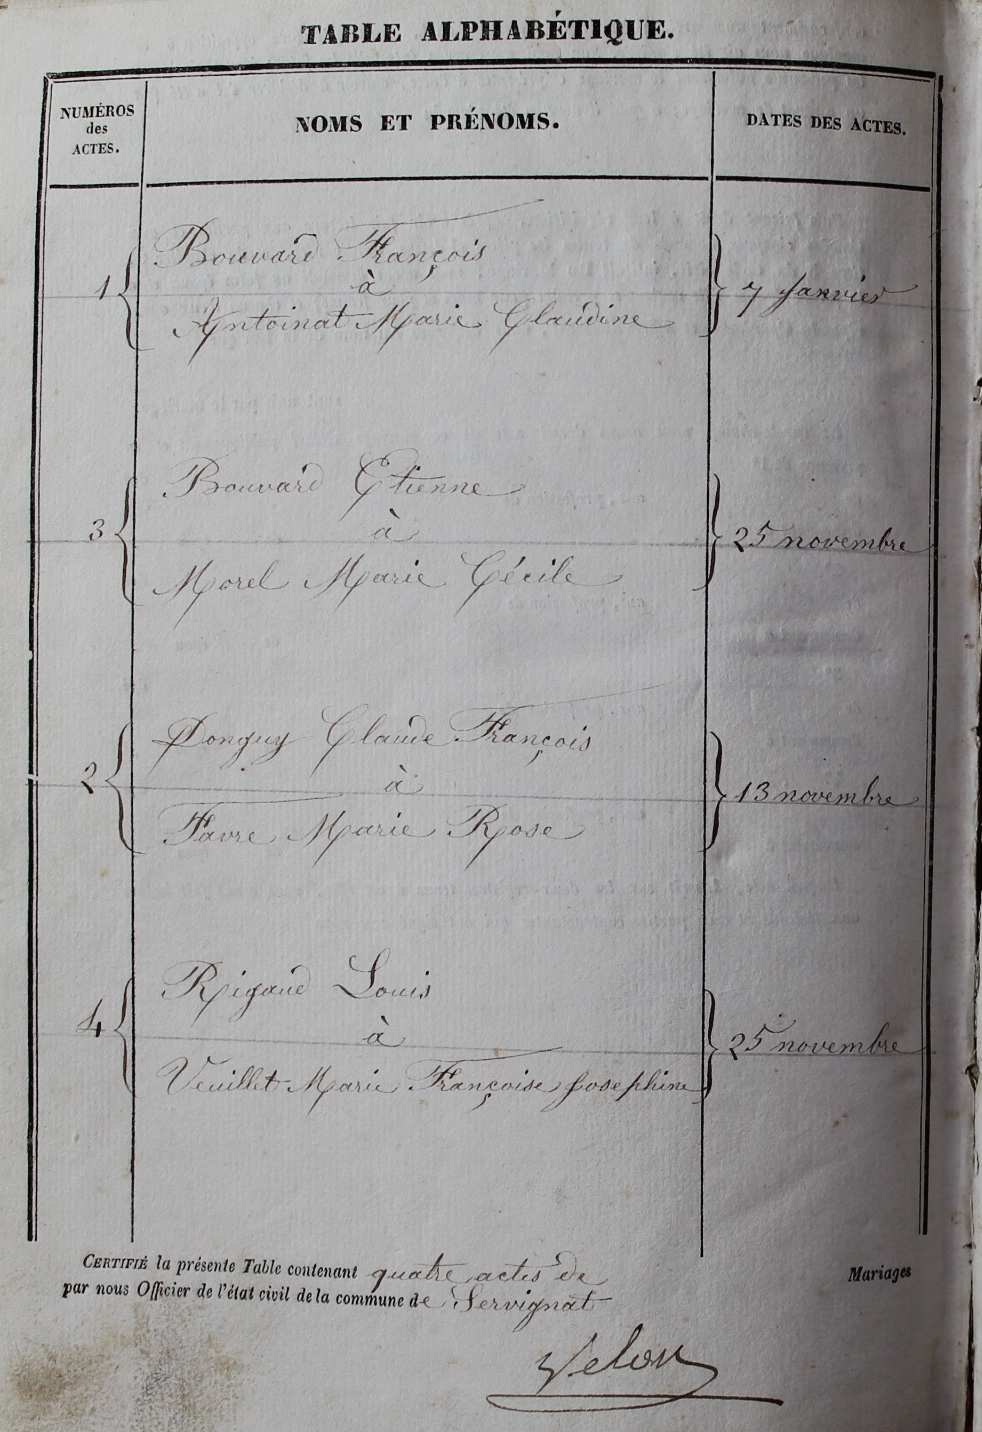 TABLE ALPHABÉTIQUE.
NUMÉROS
des
ACTES.
NOMS ET PRÉNOMS.
DATES DES ACTES.
Bouvard François
1 à 7 Janvier
Antoinat Marie Claudine
Bouvard Etienne
3 à 25 novembre
Morel Marie Cécile
Donguy Claude François
2 à 13 novembre
Favre Marie Rose
Rigaud Louis
4 à 25 novembre
Veuillet Marie Françoise Josephine
CERTIFIÉ la présente Table contenant quatre actes de Mariages
par nous Officier de l'état civil de la commune de Servignat
Velon